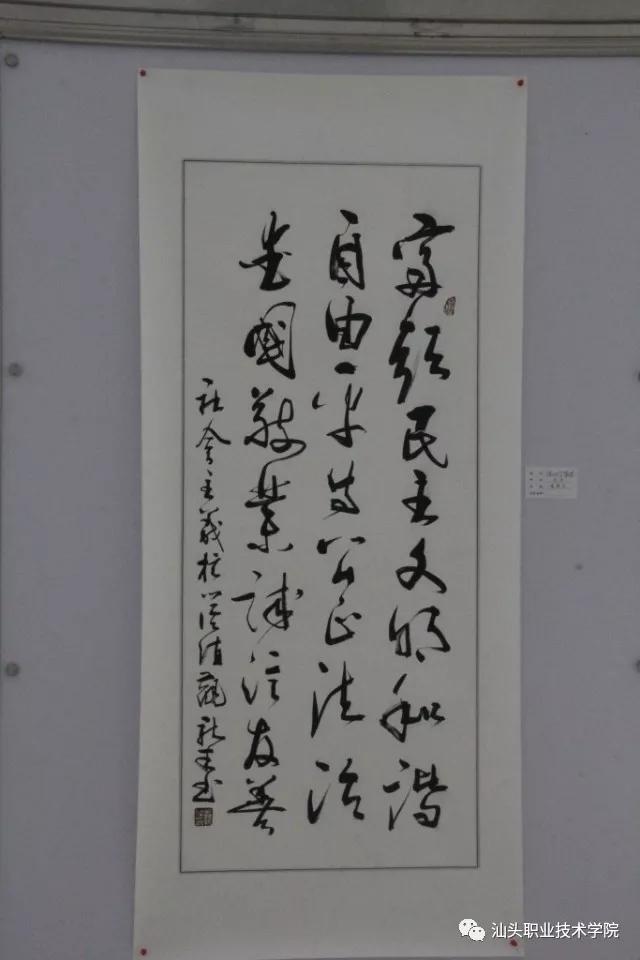 富强民主文明和谐
自由平等公正法治
爱国敬业诚信友善
社会主义核心价值观
汕头职业技术学院